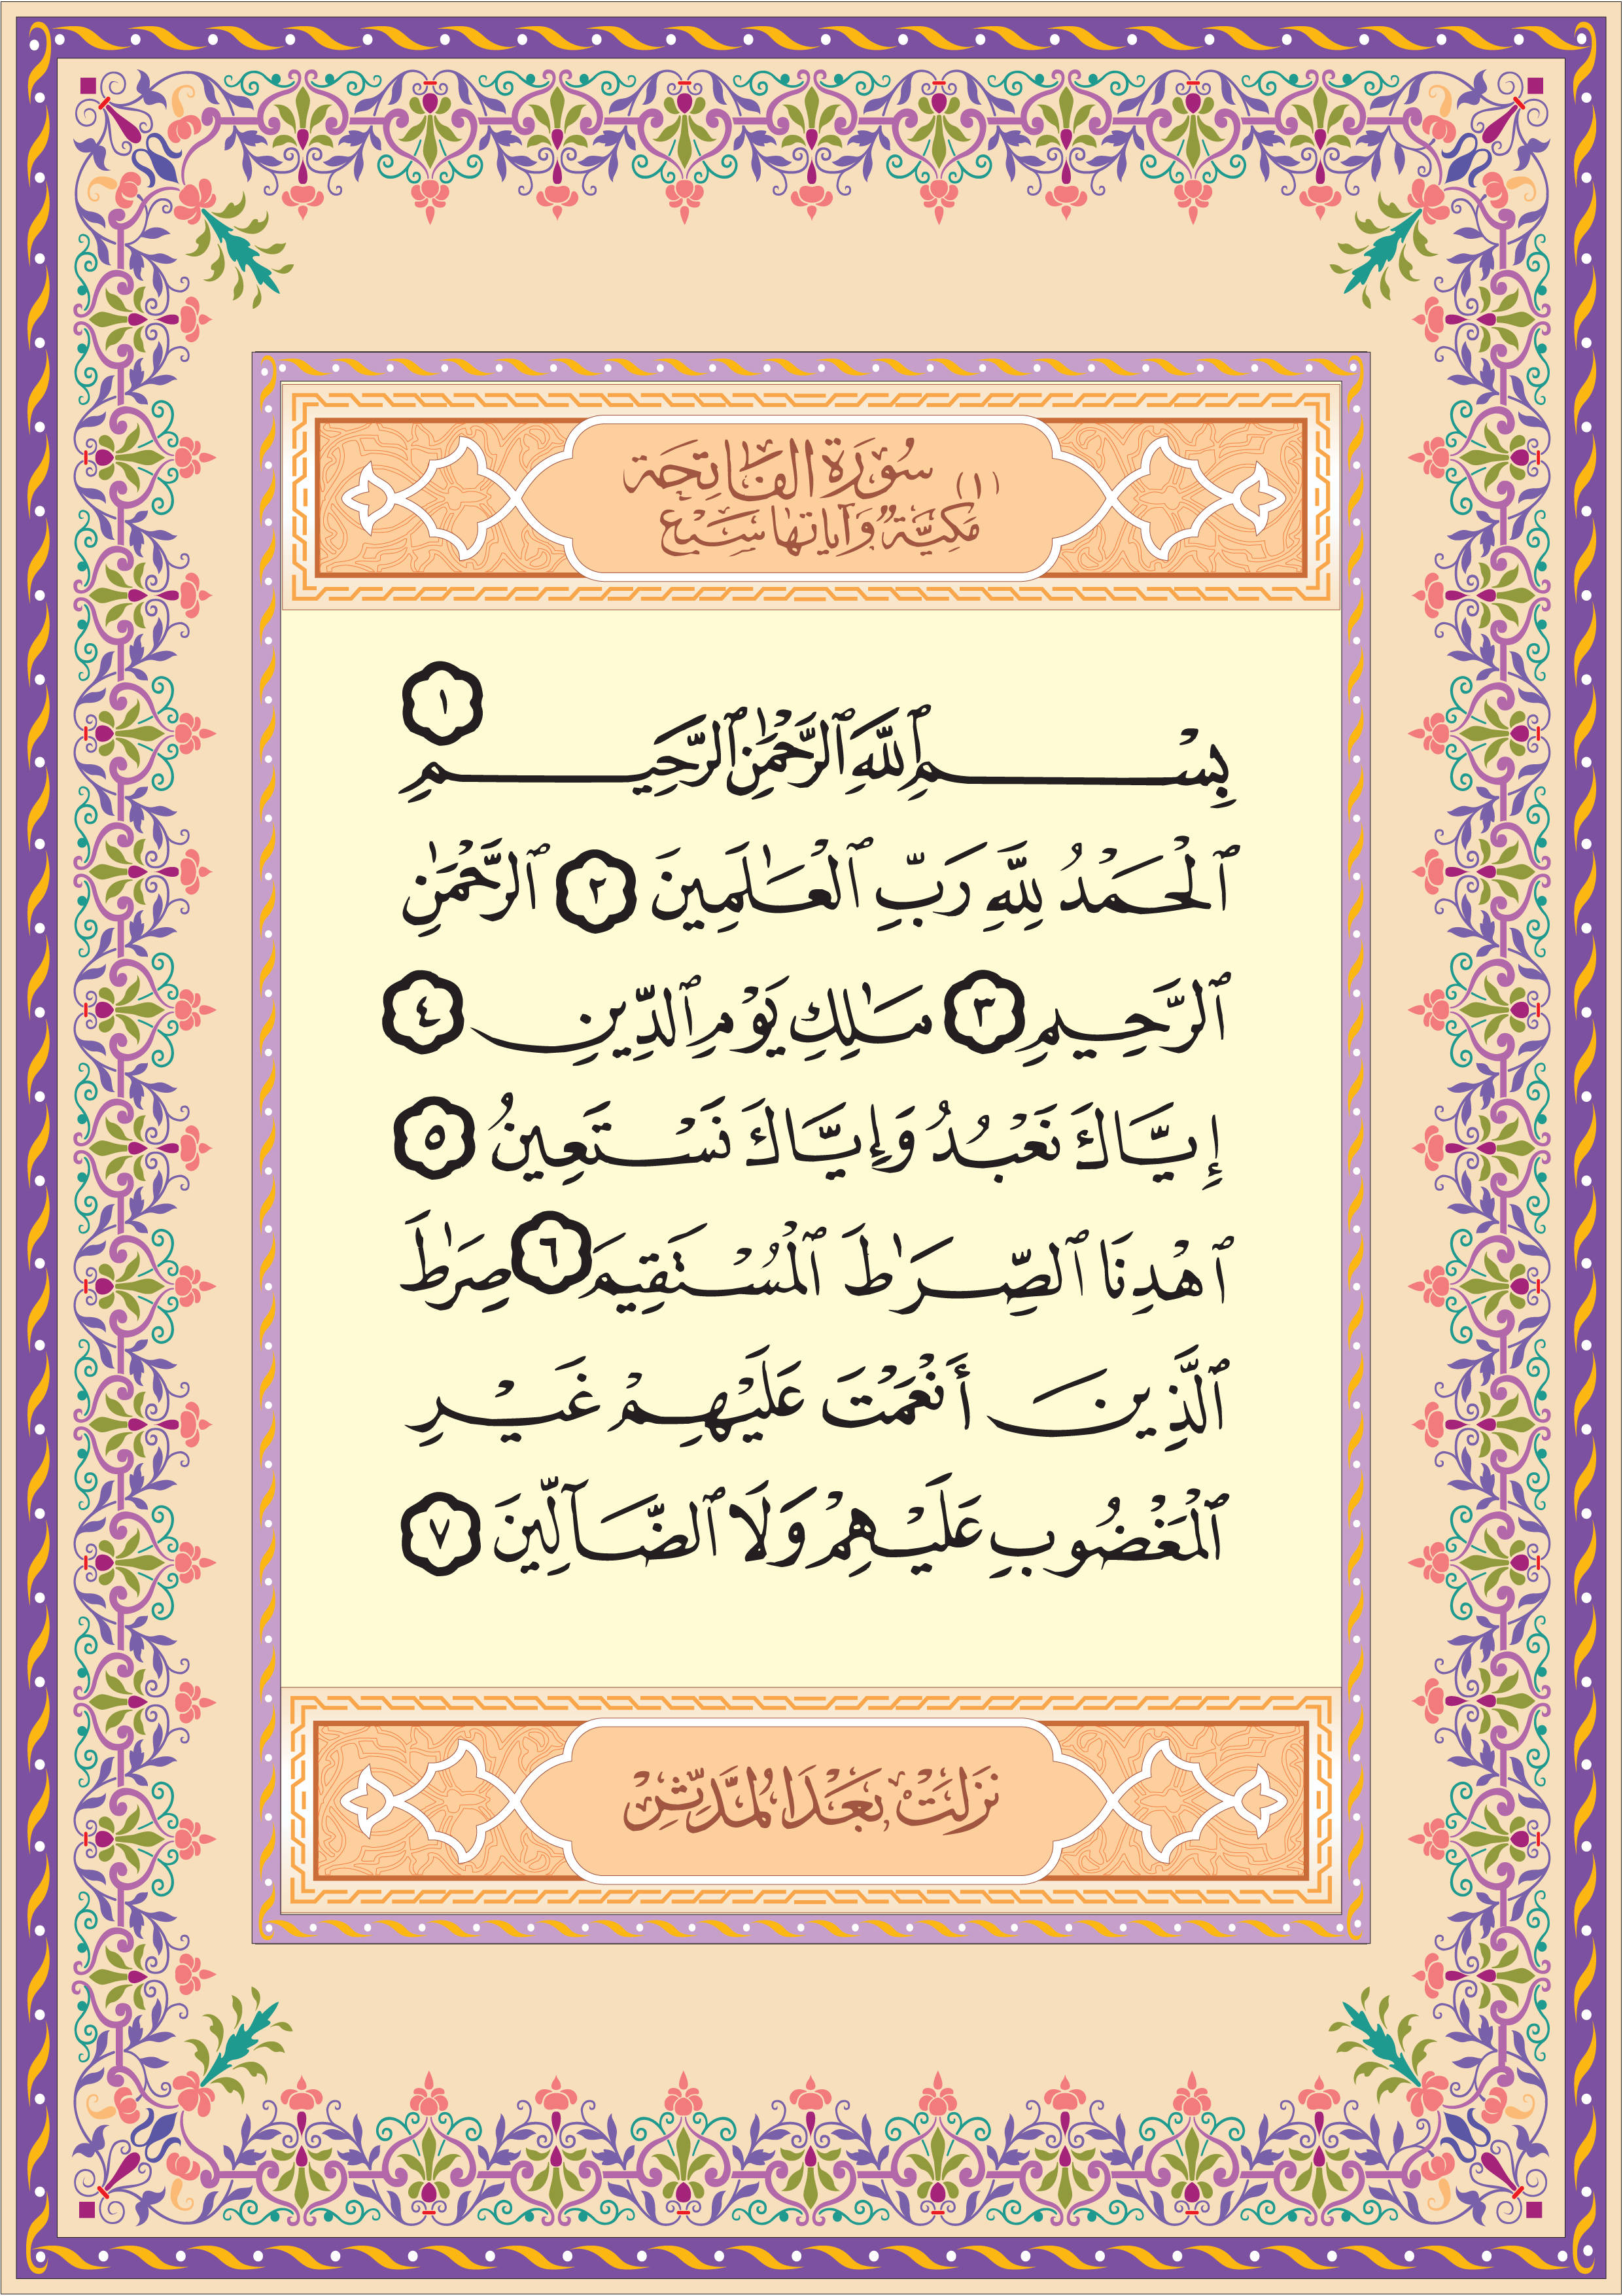 (١) سُورَة الفَاتِحَة
مَكِيَّةٌ وَآيَاتهَا سَبْع
بِسْمِ ٱللَّهِ ٱلرَّحْمَٰنِ ٱلرَّحِيمِ ١
ٱلْحَمْدُ لِلَّهِ رَبِّ ٱلْعَٰلَمِينَ ٢ ٱلرَّحْمَٰنِ
ٱلرَّحِيمِ ٣ مَٰلِكِ يَوْمِ ٱلدِّينِ ٤
إِيَّاكَ نَعْبُدُ وَإِيَّاكَ نَسْتَعِينُ ٥
ٱهْدِنَا ٱلصِّرَٰطَ ٱلْمُسْتَقِيمَ ٦ صِرَٰطَ
ٱلَّذِينَ أَنْعَمْتَ عَلَيْهِمْ غَيْرِ
ٱلْمَغْضُوبِ عَلَيْهِمْ وَلَا ٱلضَّآلِّينَ ٧
نَزَلَتْ بَعْدَ المُدَّثِّرْ